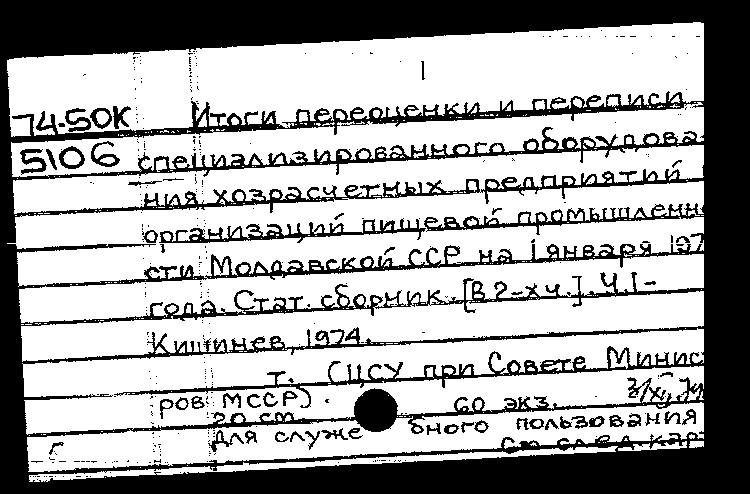 1
74-50К Итоги переоценки и переписи
5106 специализированного оборудова-
ния хозрасчетных предприятий
организаций пищевой промышленно
сти Молдавской ССР на 1 января 197
года. Стат. сборник. [В 2-х ч.]. Ч.I-
Кишинев, 1974.
т. (ЦСУ при Совете Минис
ров МССР).
20 см. 60 экз.
Для служебного пользования
См след. кар